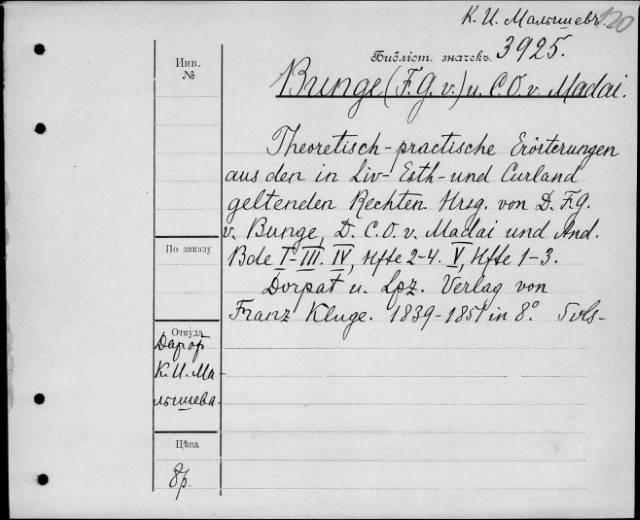 К. И. Малышевъ 120
Библіот. значекъ. 3925.
Инв.
№
Bunge (F. G. v.) u. C. O. v. Madai.
Theoretisch-practische Erörterungen
aus den in Liv- Esth- und Curland
geltenden Rechten. Hrsg. von D. F. G.
v. Bunge, D. C. O. v. Madai und And.
По заказу
Bde I-III. IV, Hfte 2-4. V, Hfte 1-3.
Dorpat u. Lpz. Verlag von
Franz Kluge. 1839-1851 in 8° 5 vls-
Откуда
Дар от
К. И. Ма-
лышева
Цѣна
8 р.